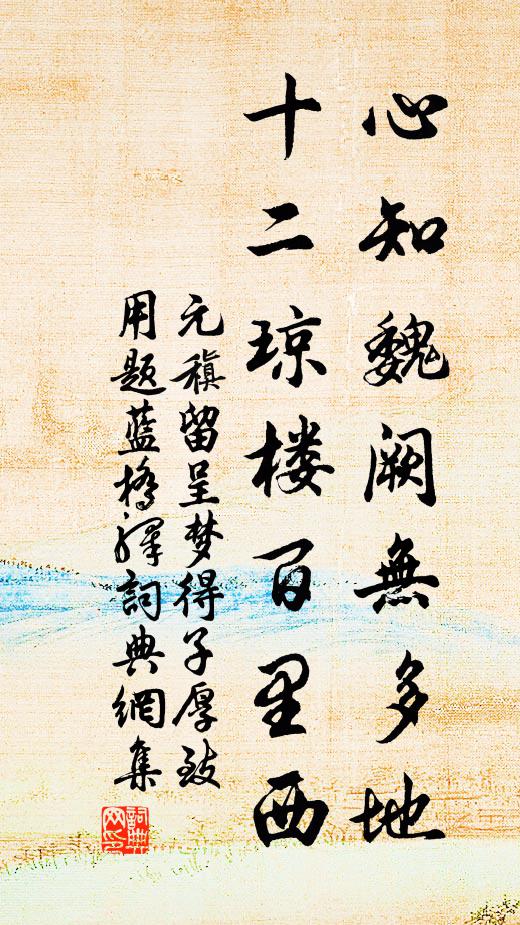 心知魏阙無多地
十二琼楼百里西
元稹留呈梦得子厚致
用题蓝橋驿詞典網集
詞典
网印